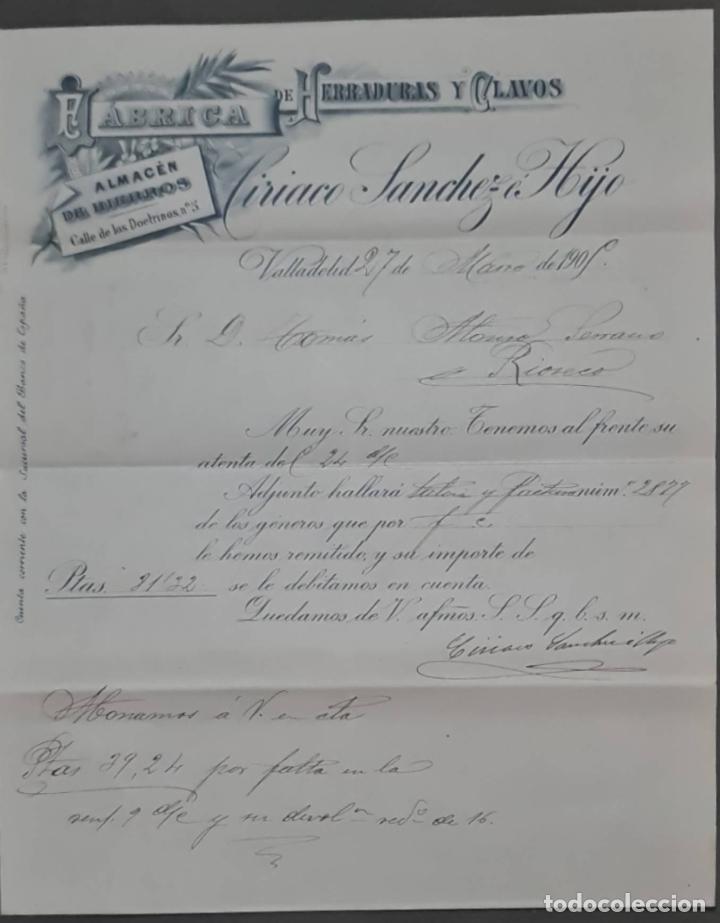 FÁBRICA DE HERRADURAS Y CLAVOS
ALMACÉN
DE HIERROS
Calle de las Doctrinas, nº 5
Ciriaco Sanchez é Hijo
Valladolid 27 de Marzo de 190
Sr. D. Tomás Alonso Serrano
Rioseco
Muy Sr. nuestro: Tenemos al frente su
atenta del 24 d/c
Adjunto hallará y factura núm.º 2877
de los géneros que por f. c.
le hemos remitido, y su importe de
Ptas. 31'32 se le debitamos en cuenta.
Quedamos de V. afmos. S. S. q. b. s. m.
Ciriaco Sanchez é Hijo
Abonamos á V. en cta
Ptas 39,24 por falta en la
9 d/c y su devolon de 16.
Cuenta corriente con la Sucursal del Banco de España
todocoleccion